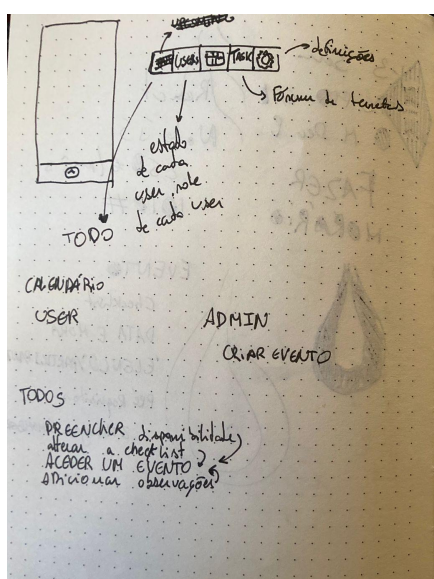 USERS
TASK
definições
Fórum de tarefas
estado
de cada
user, role
de cada user
TODO
CALENDÁRIO
USER
ADMIN
CRIAR EVENTO
TODOS
PREENCHER disponibilidade
alterar a checklist
ACEDER UM EVENTO
ADICIONAR observações